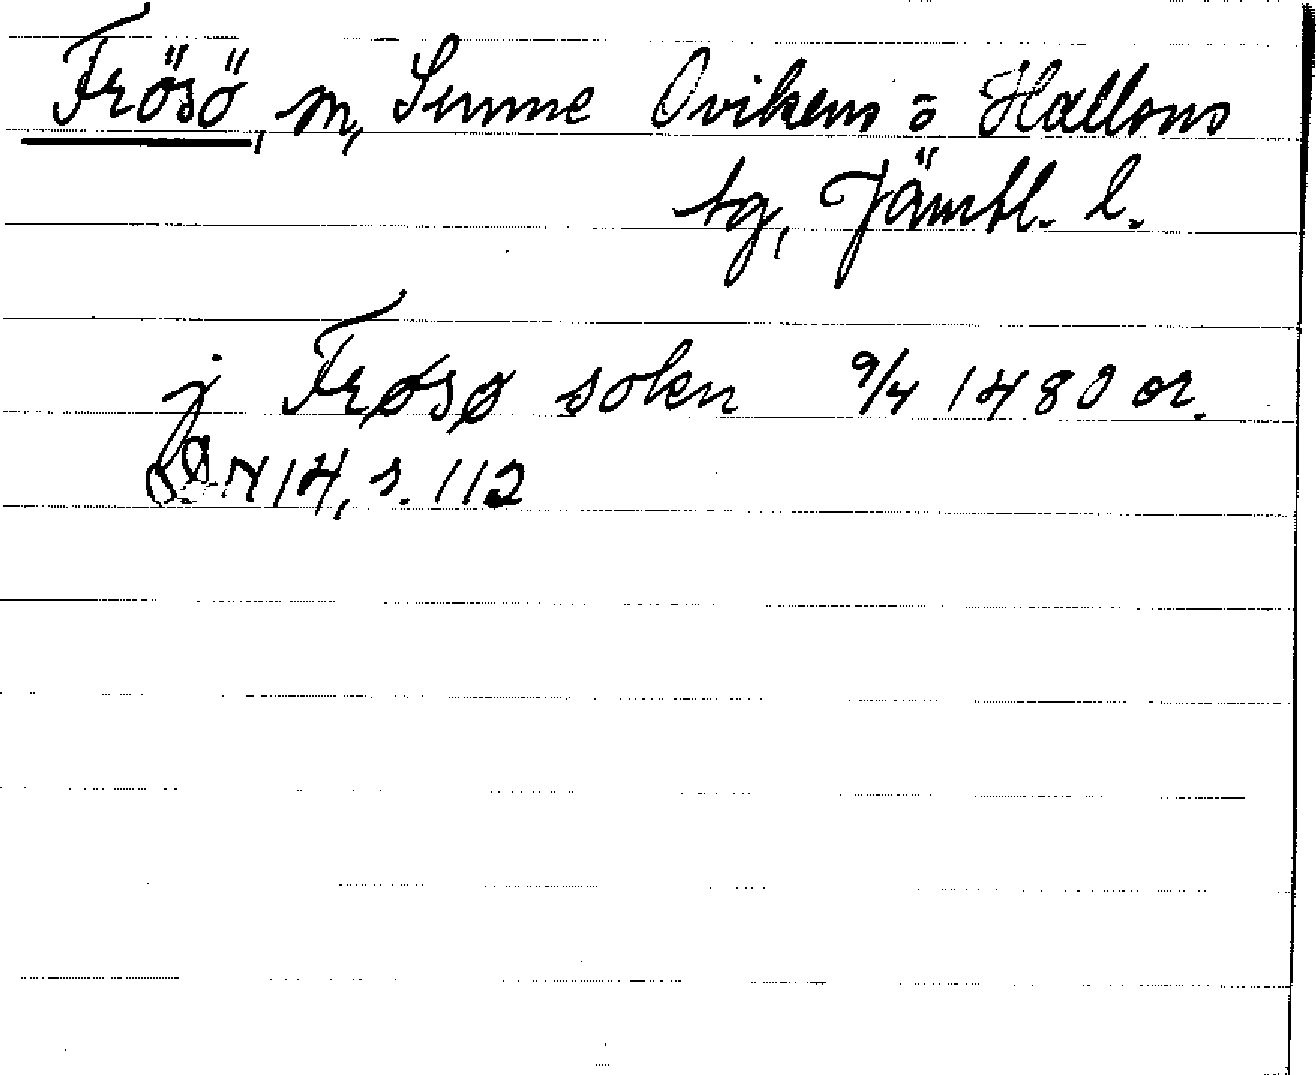 Frösö, sn, Sunne Ovikens o Hallens
tg, Jämtl. l.
j Frøsø sokn 9/4 1480 or.
DN 14, s. 112